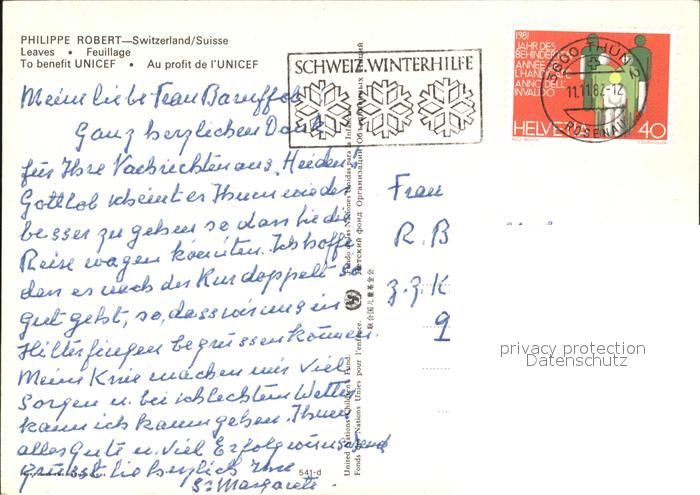 PHILIPPE ROBERT—Switzerland/Suisse
Leaves • Feuillage
To benefit UNICEF • Au profit de l'UNICEF
SCHWEIZ. WINTERHILFE
1981
JAHR DES
BEHINDERTEN
ANNÉE
L'HANDI
ANNO DELL'
INVALIDO
HELVETIA 40
3600 THUN 2
11.11.82-12
ROSENAU
Meine liebe Frau
Ganz herzlichen Dank
für Ihre Nachrichten aus Heiden.
Gottlob scheint es Ihnen wieder
besser zu gehen so dass Sie die
Reise wagen konnten. Ich hoffe
dass es nach der Kur doppelt so
gut geht, so, dass wir uns in
Hilterfingen begrüssen können.
Meine Knie machen mir viel
Sorgen u. bei schlechtem Wetter
kann ich kaum gehen. Ihnen
alles Gute u. viel Erfolg wünschend
grüsst Sie herzlich Ihre
Sr Margarete.
Frau
R. B
z. Z. K
9
541-d
United Nations Children's Fund.
Fonds des Nations Unies pour l'enfance.
Fondo de las Naciones Unidas para la Infancia
Детский фонд Организации Объединенных Наций
联合国儿童基金会
privacy protection
Datenschutz